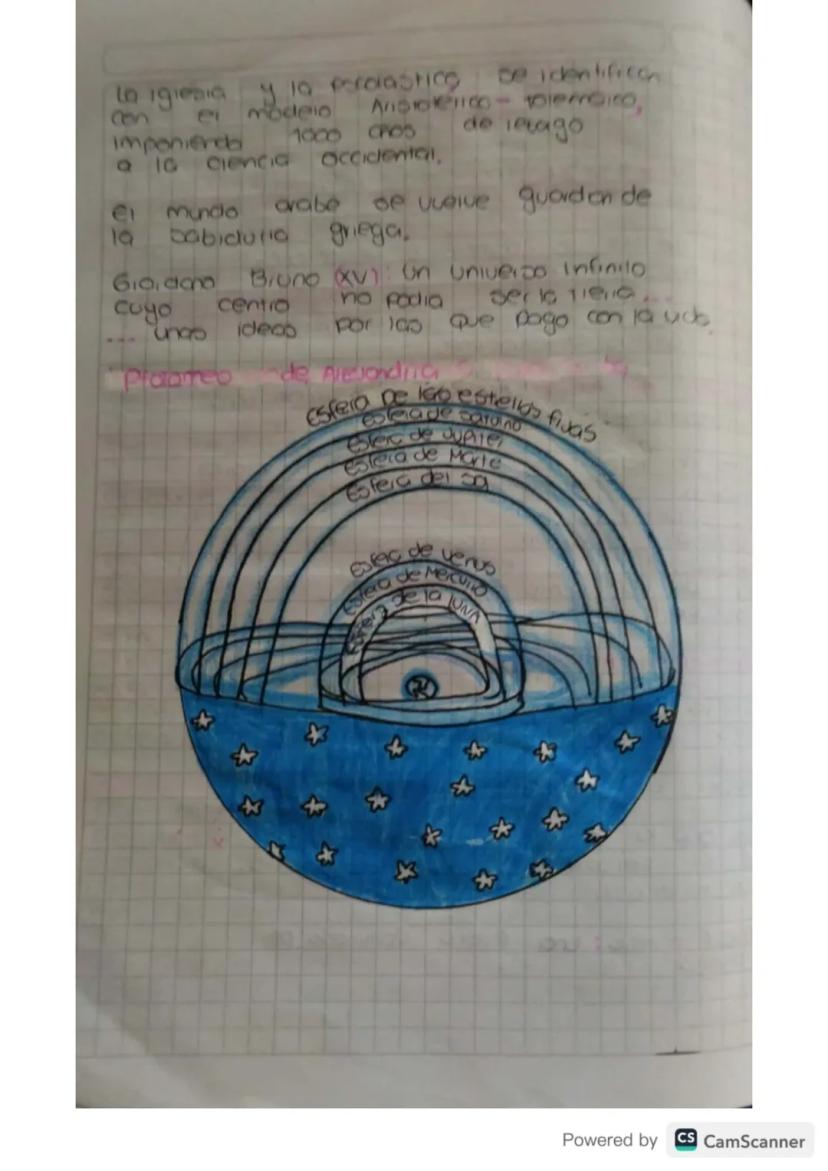 La iglesia y la escolastica se identifican
con el modelo Aristotélico - tolemaico,
imponiendo 1000 años de letargo
a la ciencia occidental.
el mundo arabe se vuelve guardan de
la sabiduria griega.
Giordano Bruno (XV): Un universo infinito
cuyo centro no podia ser la tierra...
... unas ideas por las que pago con la vida.
Ptolomeo de Alejandria
Esfera De las estrellas fijas
esfera de saturno
esfera de Jupiter
esfera de Marte
esfera del sol
esfera de venus
esfera de Mercurio
esfera de la LUNA
Powered by CS CamScanner